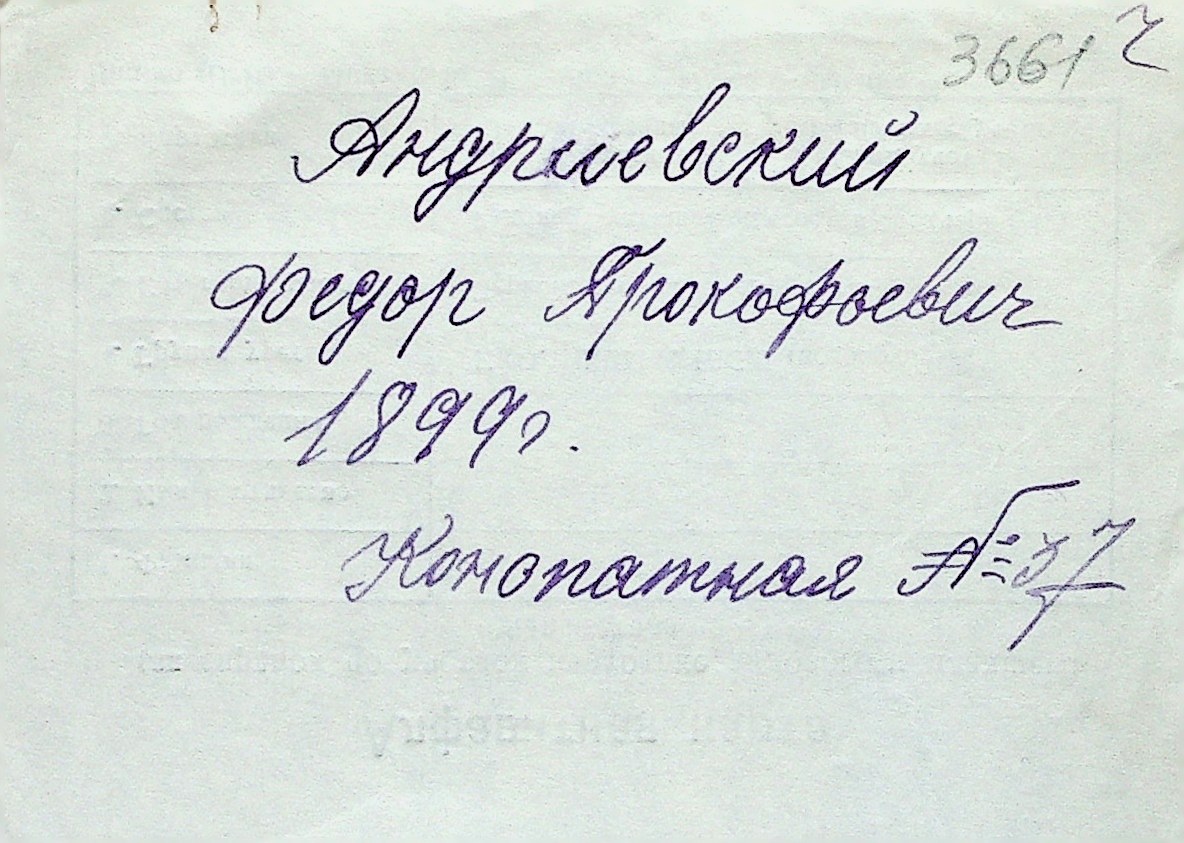 3661 ч
Андриевский
Федор Прокофьевич
1899г.
Конопатная №37